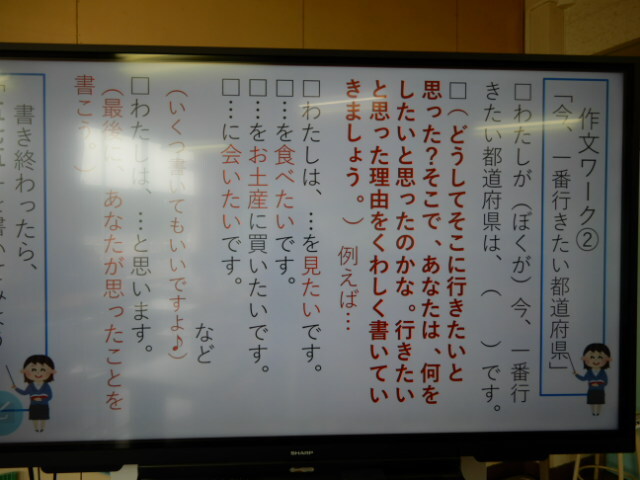 作文ワーク②
「今、一番行きたい都道府県」
□わたしが(ぼくが)今、一番行
きたい都道府県は、(　　)です。
□(どうしてそこに行きたいと
思った?そこで、あなたは、何を
したいと思ったのかな。行きたい
と思った理由をくわしく書いてい
きましょう。) 例えば…
□わたしは、…を見たいです。
□…を食べたいです。
□…をお土産に買いたいです。
□…に会いたいです。
など
(いくつ書いてもいいですよ♪)
□わたしは、…と思います。
(最後に、あなたが思ったことを
書こう。)
書き終わったら、
SHARP